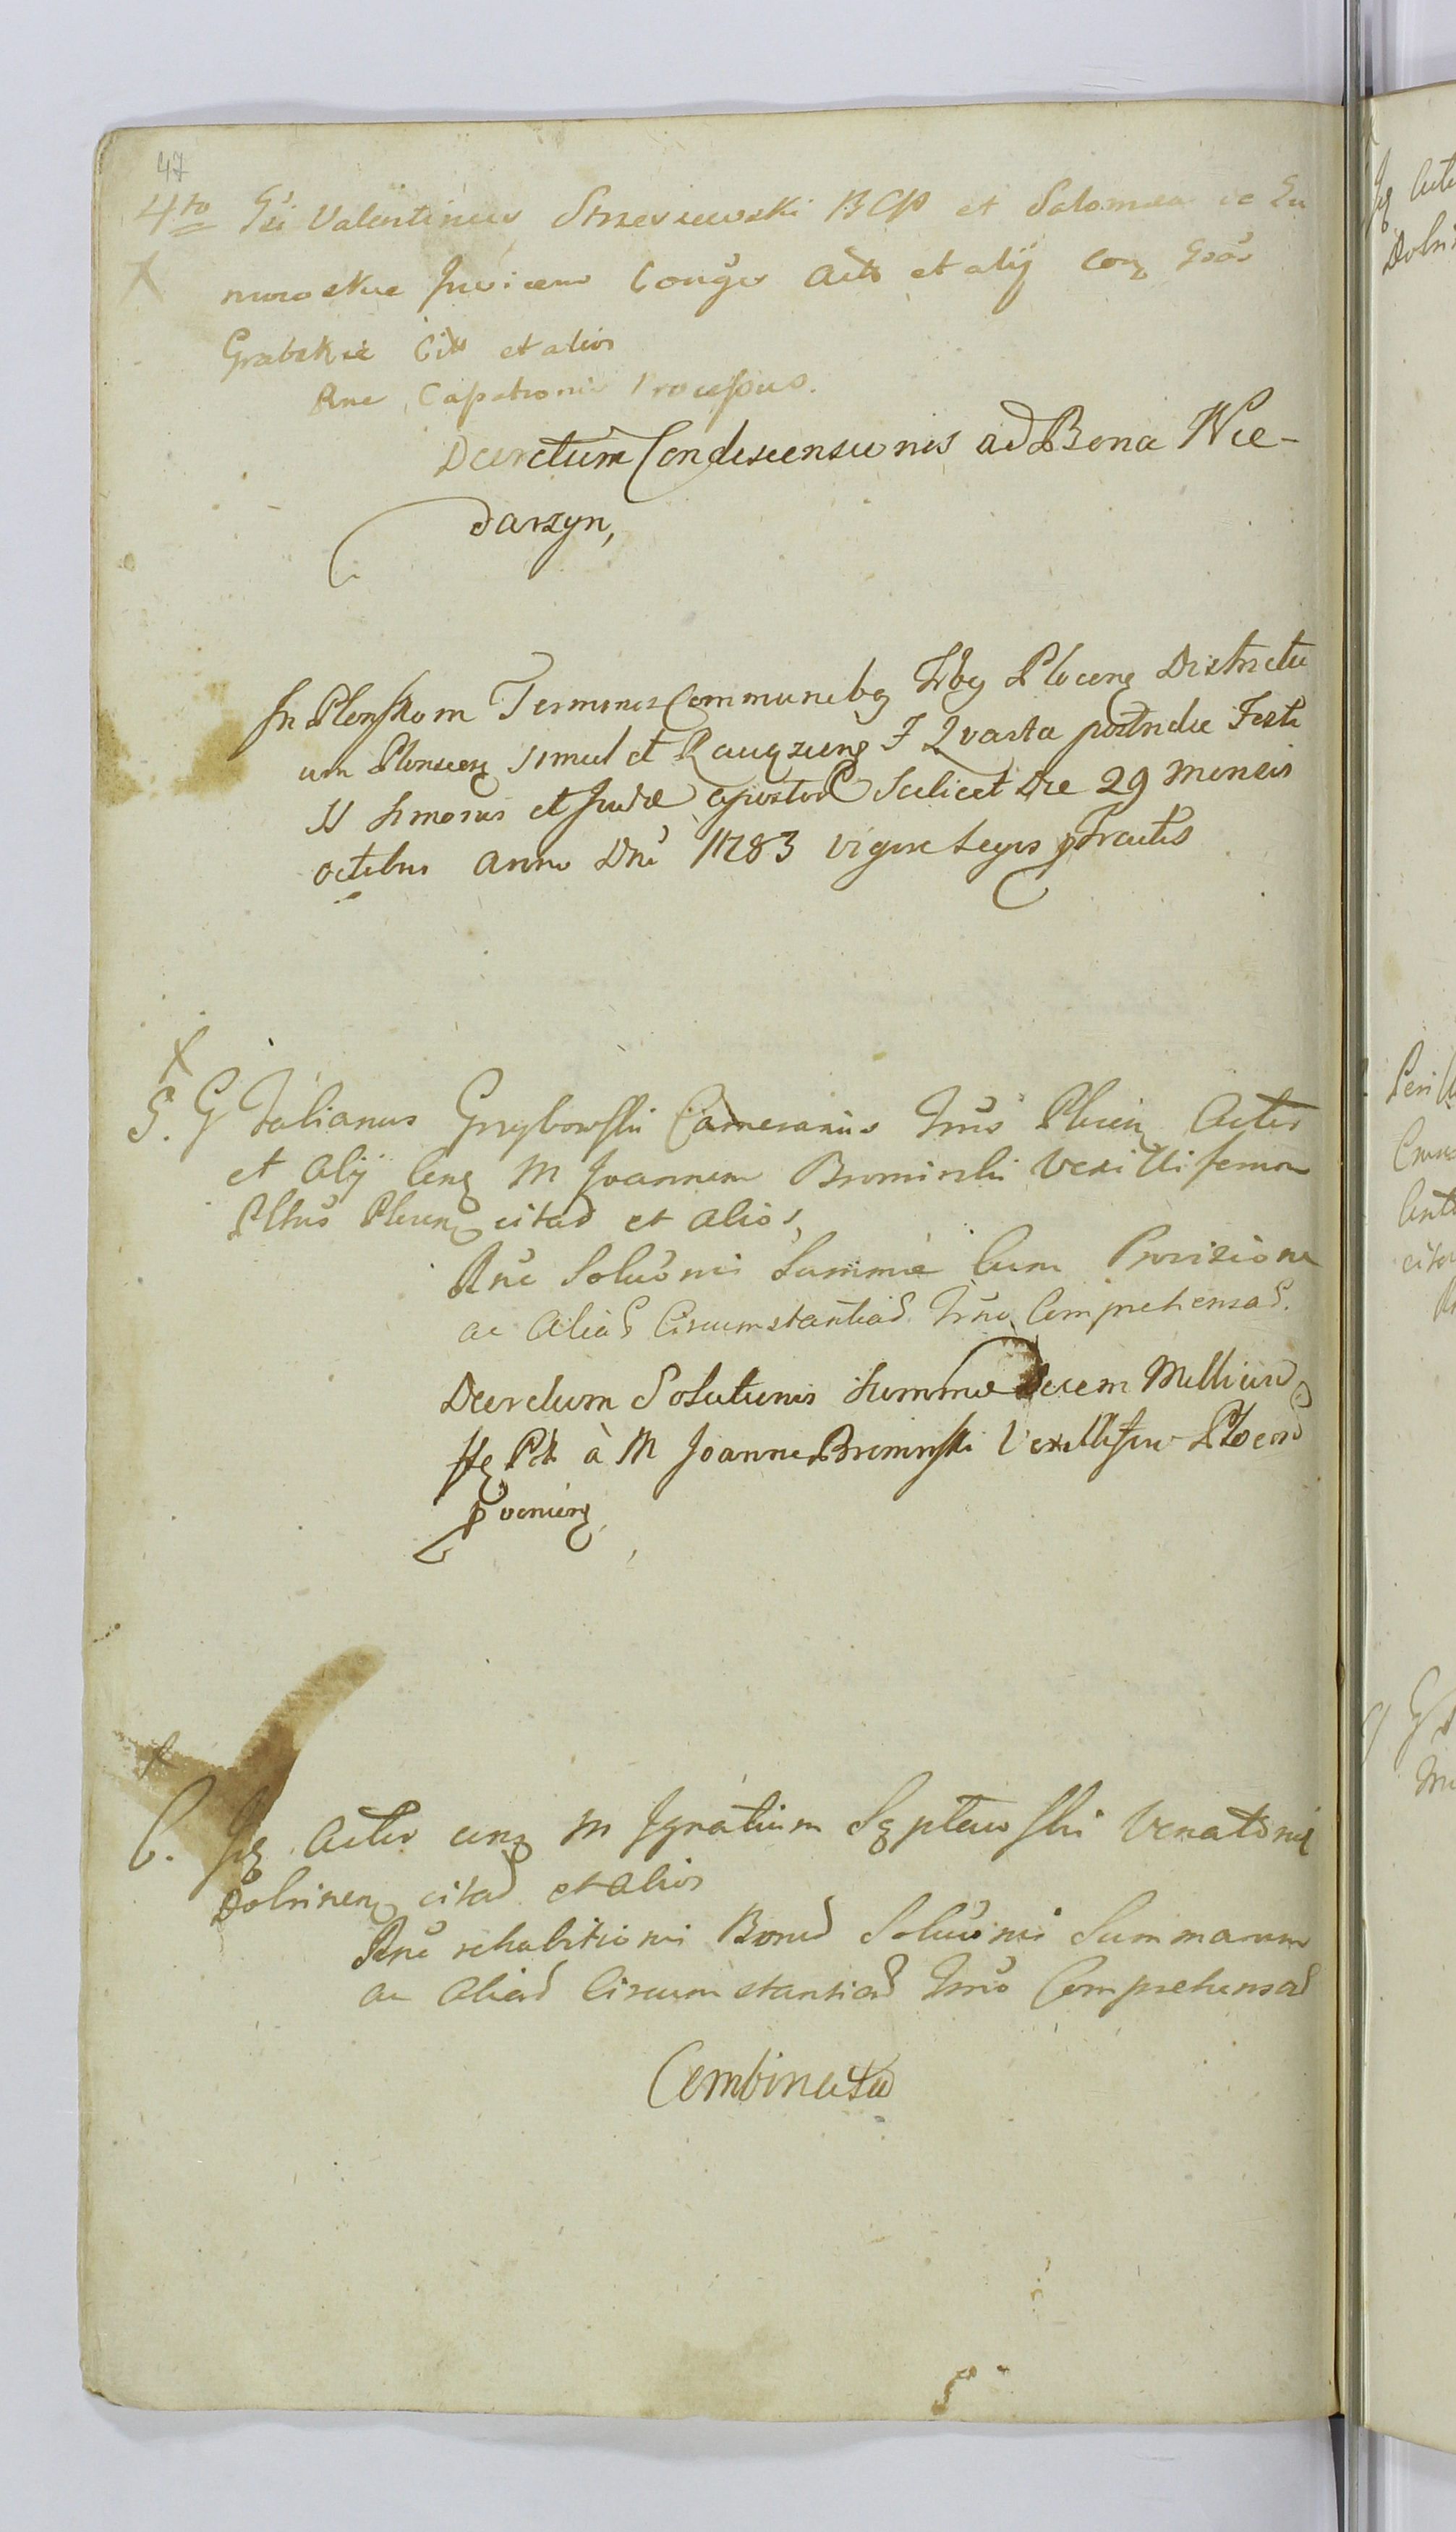 47
4to Gsi Valentinus Strzeszewski BCP et Salomea de Su
X
mirostkie Invicem Conges Acts et alij Conq Gsos
Grabskie Citt et alios
Rne Capationis Processus.
Decretum Condescensionis ad Bona Nie-
darzyn,
In Plonskom Terminis Communibq Trbq Plocenq Districtu
um Plonscenq simul et Raciązienq F Quarta postridie Festi
SS Simonis et Judæ Apostol Scilicet Die 29 Mensis
octobris anni Dni 1783 vigore Legis pstrautis
X
5. G Julianus Grzybowski Camerarius Trus Plocen Actor
et Alij Conq M Joannem Brominski Vexilliferum
Pltus Plocenq citad et alios,
Rne Soluonis Summæ Cum Provisione
ac Alias Circumstantias Trno Comprehensas.
Decretum Solutionis Summæ Decem Millium
ffq Pol à M Joanne Brominski Vexillifero Plocens
pvenienq,
X
6. Idq Actor conq M Ignatium Sęptowski Venatorem
Dobrinenq citad et alios
Rne rehabitionis Bonor Soluonis Summarum
ac Alias Circumstantias Trno Comprehensas
Combinata